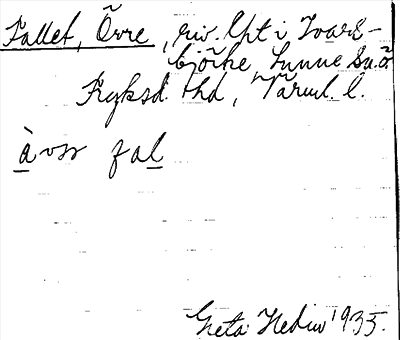 Fallet, Övre, riv. lht i Ivars-
björke, Sunne sn. ö
Fryksd. hd, Värml. l.
àvrr fal
Greta Hedin 1935.